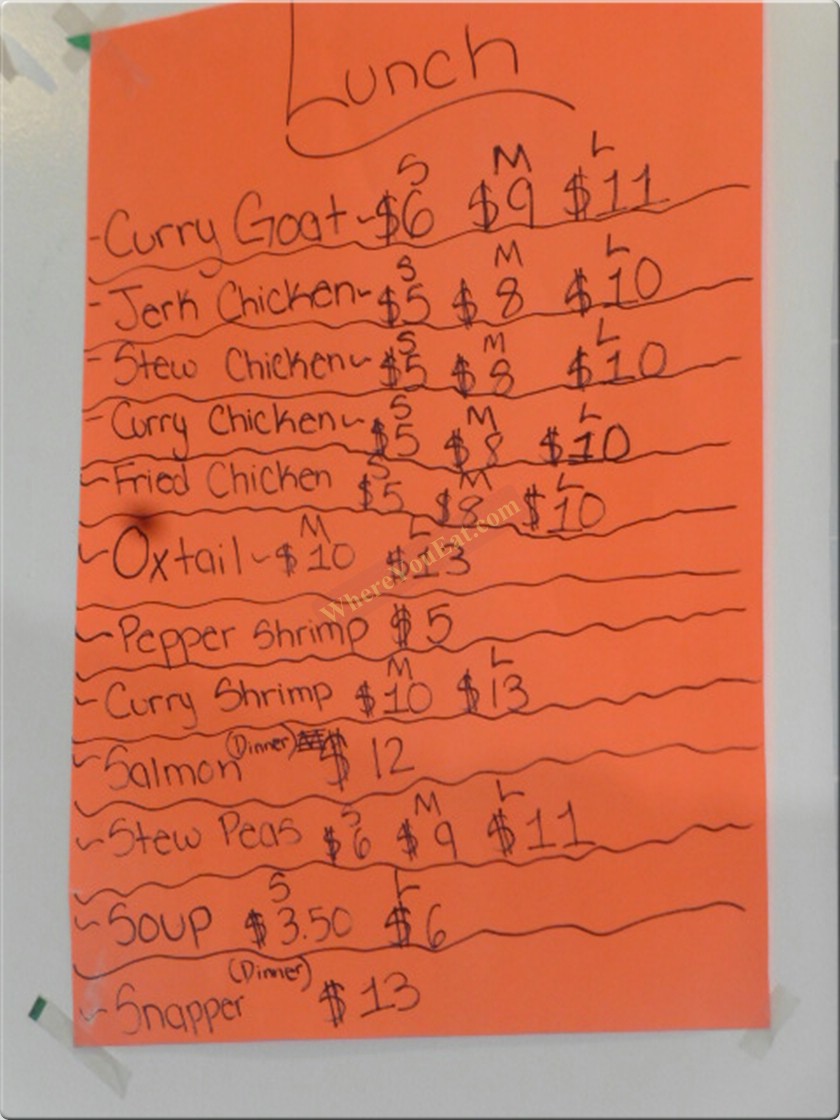 Lunch
S M L
- Curry Goat - $6 $9 $11
S M L
- Jerk Chicken - $5 $8 $10
S M L
- Stew Chicken - $5 $8 $10
S M L
- Curry Chicken - $5 $8 $10
S M L
- Fried Chicken $5 $8 $10
M L
- Oxtail - $10 $13
WhereYouEat.com
- Pepper Shrimp $5
M L
- Curry Shrimp $10 $13
- Salmon (Dinner) $12
S M L
- Stew Peas $6 $9 $11
S L
- Soup $3.50 $6
- Snapper (Dinner) $13